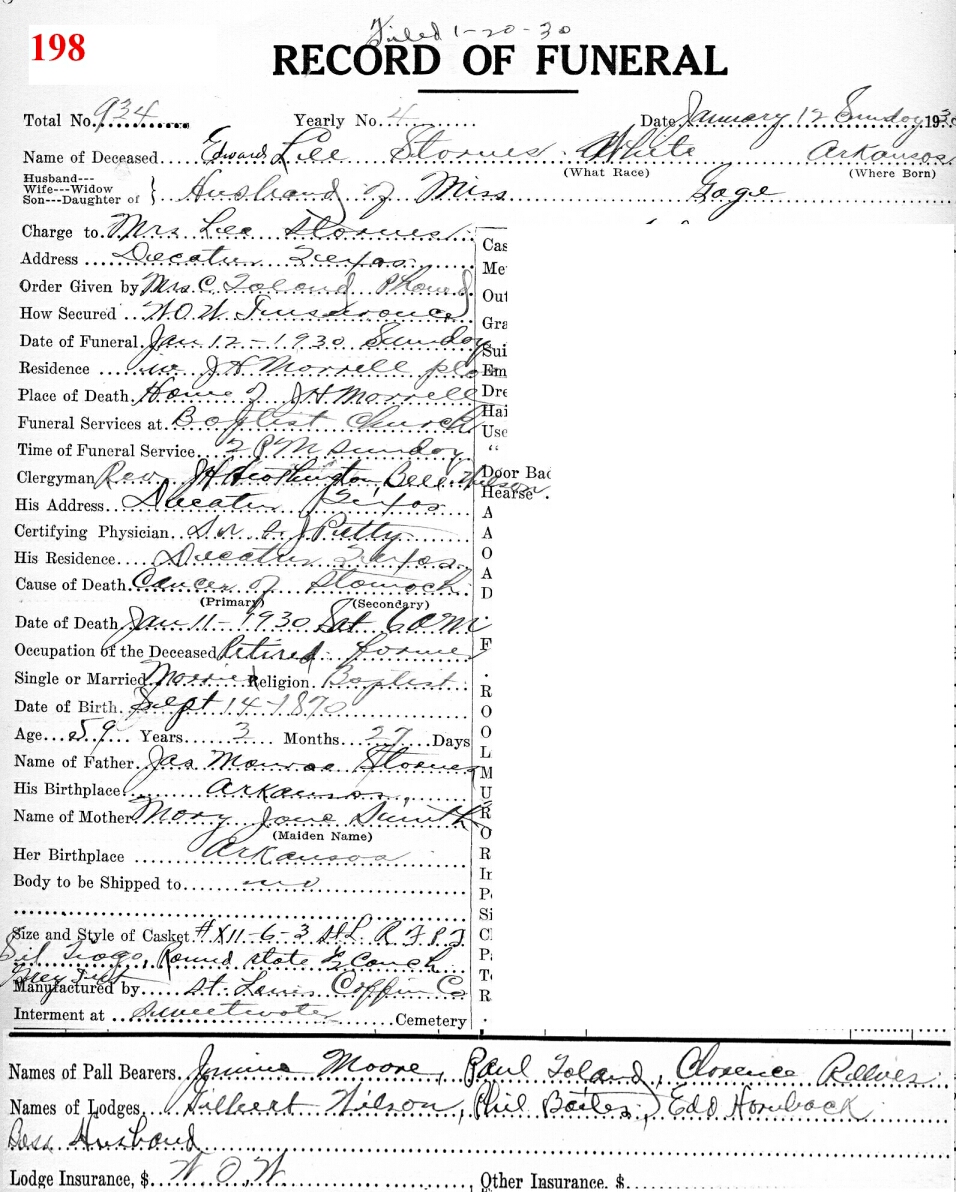 Filed 1-20-30
198
RECORD OF FUNERAL
Total No. 934 Yearly No. 4 Date January 12 Sunday 1930
Name of Deceased Edward Lee Stornes White Arkansas
(What Race) (Where Born)
Husband---
Wife---Widow
Son---Daughter of } Husband of Miss Gage
Charge to Mrs Lee Stornes
Address Decatur Texas
Order Given by Mrs C. Toland Phoned
How Secured W.O.W. Insurance
Date of Funeral Jan 12-1930 Sunday
Residence in J H Morrell place
Place of Death Home of J H Morrell
Funeral Services at Baptist Church
Time of Funeral Service 2 PM Sunday
Clergyman Rev. J H Bell Wilson
His Address Decatur Texas
Certifying Physician Dr. J Petty
His Residence Decatur Texas
Cause of Death Cancer of Stomach
(Primary) (Secondary)
Date of Death Jan 11-1930 Sat 6 am
Occupation of the Deceased Retired farmer
Single or Married Married Religion Baptist
Date of Birth Sept 14-1870
Age 59 Years 3 Months 27 Days
Name of Father Jas Monroe Stornes
His Birthplace Arkansas
Name of Mother Mary Jane Smith
(Maiden Name)
Her Birthplace Arkansas
Body to be Shipped to no
Size and Style of Casket #X11-6-3 St L R F P T
Sil Round state & Couch
Grey
Manufactured by St. Louis Coffin Co
Interment at Sweetwater Cemetery
Cas
Me
Out
Gra
Sui
Em
Dre
Hai
Use
"
Door Bad
Hearse
A
A
O
A
D
F
R
O
O
L
M
U
R
O
R
In
P
Si
Cl
P
T
R
Names of Pall Bearers Jimmie Moore, Paul Toland, Clarence Reeves
Names of Lodges Gilbert Wilson, Phil Bailes, Edd Hornback
Bess Husband
Lodge Insurance, $ W.O.W. Other Insurance. $